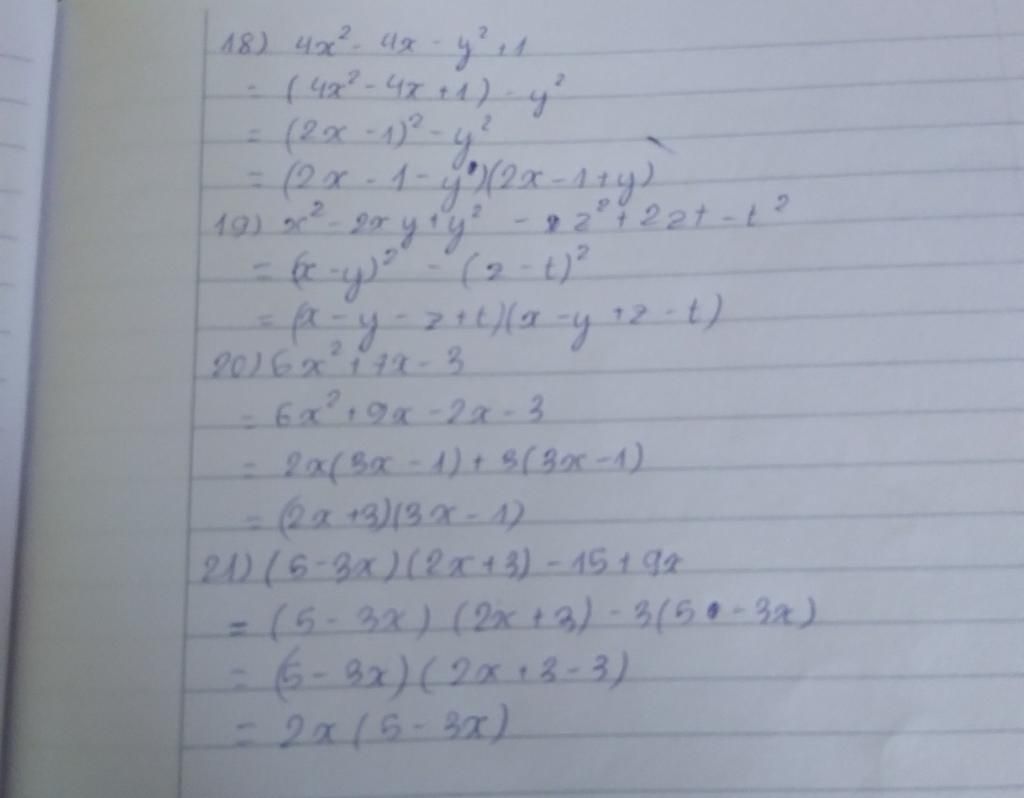 18) 4x² - 4x - y² + 1
= (4x² - 4x + 1) - y²
= (2x - 1)² - y²
= (2x - 1 - y)(2x - 1 + y)
19) x² - 2xy + y² - z² + 2zt - t²
= (x - y)² - (z - t)²
= (x - y - z + t)(x - y + z - t)
20) 6x² + 7x - 3
= 6x² + 9x - 2x - 3
= 2x(3x - 1) + 3(3x - 1)
= (2x + 3)(3x - 1)
21) (5 - 3x)(2x + 3) - 15 + 9x
= (5 - 3x) (2x + 3) - 3(5 - 3x)
= (5 - 3x) (2x + 3 - 3)
= 2x (5 - 3x)